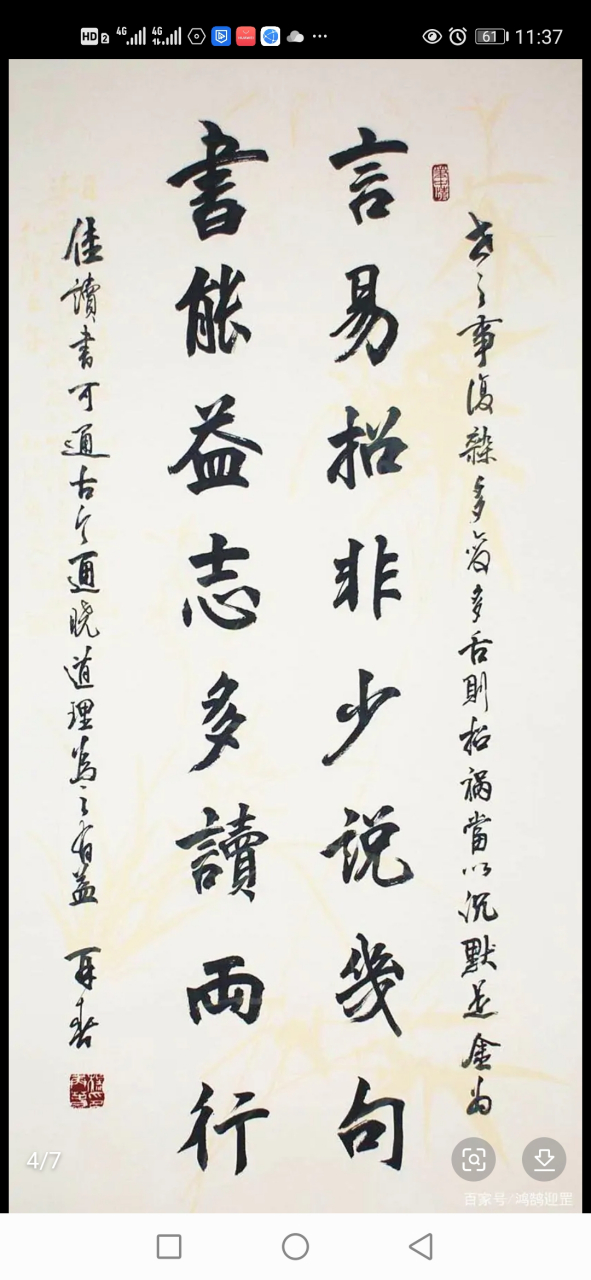 HD 2 4G 4G 61 11:37
世之事復雜多變多舌則招禍當以沉默是金為
言易招非少说幾句
書能益志多讀兩行
佳讀書可通古今通曉道理為之有益
4/7
百家号/鸿鹄迎罡